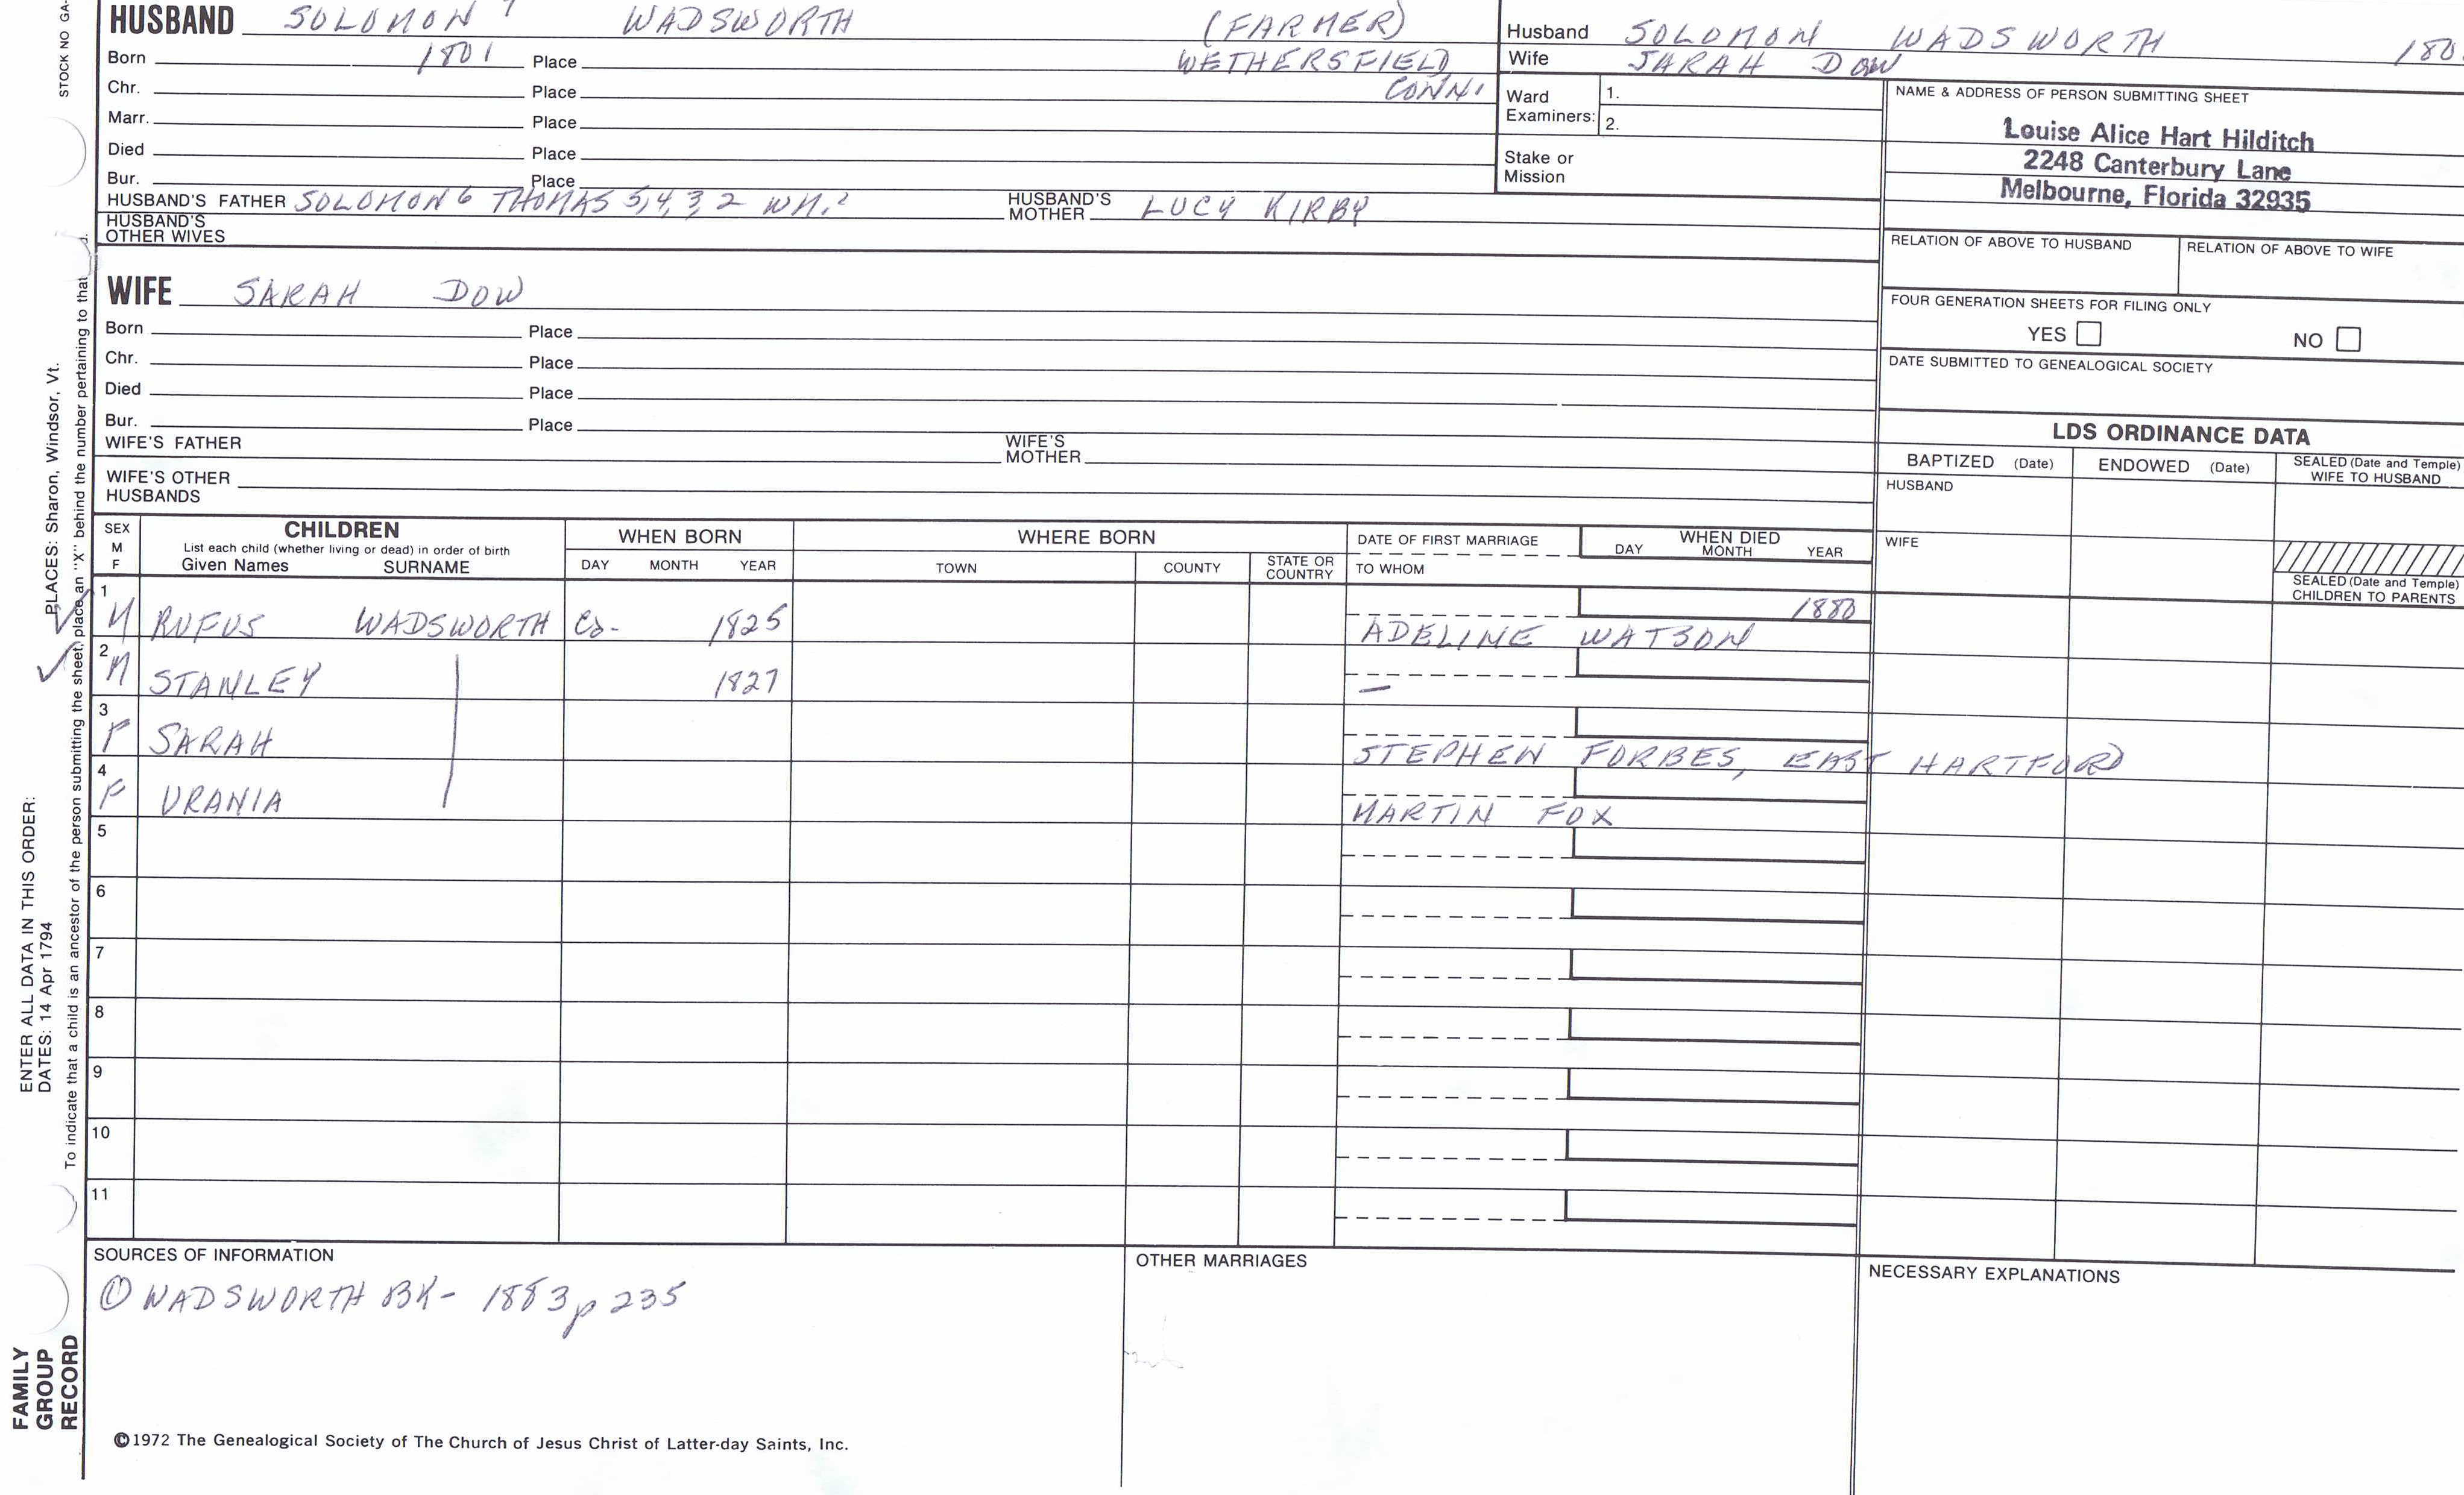 STOCK NO GA-
HUSBAND SOLOMON 7 WADSWORTH (FARMER)
Born 1801 Place WETHERSFIELD
Chr. Place CONN.
Marr. Place
Died Place
Bur. Place
HUSBAND'S FATHER SOLOMON 6 THOMAS 5, 4, 3, 2 WM. HUSBAND'S MOTHER LUCY KIRBY
HUSBAND'S OTHER WIVES
WIFE SARAH DOW
Born Place
Chr. Place
Died Place
Bur. Place
WIFE'S FATHER WIFE'S MOTHER
WIFE'S OTHER HUSBANDS
Husband SOLOMON WADSWORTH 180
Wife SARAH DOW
Ward Examiners: 1.
2.
Stake or Mission
NAME & ADDRESS OF PERSON SUBMITTING SHEET
Louise Alice Hart Hilditch
2248 Canterbury Lane
Melbourne, Florida 32935
RELATION OF ABOVE TO HUSBAND RELATION OF ABOVE TO WIFE
FOUR GENERATION SHEETS FOR FILING ONLY
YES NO
DATE SUBMITTED TO GENEALOGICAL SOCIETY
LDS ORDINANCE DATA
BAPTIZED (Date) ENDOWED (Date) SEALED (Date and Temple) WIFE TO HUSBAND
HUSBAND
WIFE
SEALED (Date and Temple) CHILDREN TO PARENTS
SEX M F
CHILDREN
List each child (whether living or dead) in order of birth
Given Names SURNAME
WHEN BORN
DAY MONTH YEAR
WHERE BORN
TOWN COUNTY STATE OR COUNTRY
DATE OF FIRST MARRIAGE
TO WHOM
WHEN DIED
DAY MONTH YEAR
1 M RUFUS WADSWORTH 1825 1880
ADELINE WATSON
2 M STANLEY 1827 —
3 F SARAH STEPHEN FORBES, EAST HARTFORD
4 F URANIA MARTIN FOX
5
6
7
8
9
10
11
SOURCES OF INFORMATION
① WADSWORTH BK- 1883 p 235
OTHER MARRIAGES
NECESSARY EXPLANATIONS
©1972 The Genealogical Society of The Church of Jesus Christ of Latter-day Saints, Inc.
FAMILY
GROUP
RECORD
ENTER ALL DATA IN THIS ORDER:
DATES: 14 Apr 1794
PLACES: Sharon, Windsor, Vt.
To indicate that a child is an ancestor of the person submitting the sheet, place an "X" behind the number pertaining to that